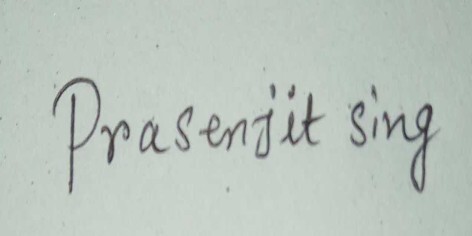 Prasenjit sing